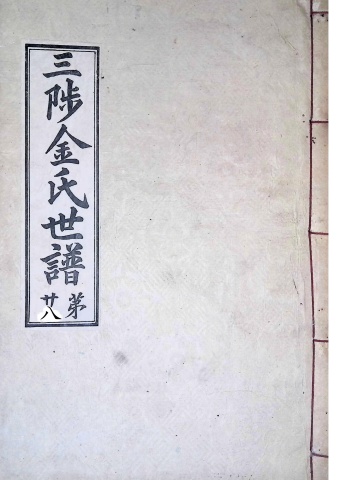 三陟金氏世譜
第廿八